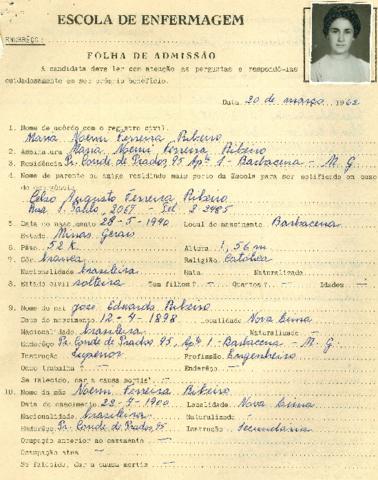 ESCOLA DE ENFERMAGEM
ENDERÊÇO:
FOLHA DE ADMISSÃO
A candidata deve ler com atenção as perguntas e respondê-las
cuidadosamente em seu próprio benefício.
Data 20 de março, 1962
1. Nome de acôrdo com o registro civil.
Maria Noemi Ferreira Ribeiro
2. Assinatura Maria Noemi Ferreira Ribeiro
3. Residência Pr. Conde de Prados, 95 Aptº 1 - Barbacena - M. G.
4. Nome de parente ou amigo residindo mais perto da Escola para ser notificado em caso
de
Celso Augusto Ferreira Ribeiro
Rua S. Paulo, 2067 - Tel. 2-2985
5. Data do nascimento 28-5-1940 Local do nascimento Barbacena
Estado Minas Gerais
6. Pêso 52 K. Altura 1,56 m
7. Côr branca Religião Católica
Nacionalidade brasileira Data Naturalizado
8. Estado civil solteira Tem filhos? - Quantos? - Idades -
9. Nome do pai José Eduardo Ribeiro
Data do nascimento 12-9-1898 Localidade Nova Lima
Nacionalidade brasileira Naturalizado -
Enderêço Pr. Conde de Prados, 95, Aptº 1 - Barbacena - M. G.
Instrução Superior Profissão Engenheiro
Onde trabalha - Enderêço -
Se falecido, dar a causa mortis -
10. Nome da mãe Noemi Ferreira Ribeiro
Data do nascimento 22-9-1900 Localidade Nova Lima
Nacionalidade brasileira Naturalizado -
Enderêço Pr. Conde de Prados, 95 Instrução Secundária
Ocupação anterior ao casamento -
Ocupação atua -
Se falecido, dar a causa mortis -